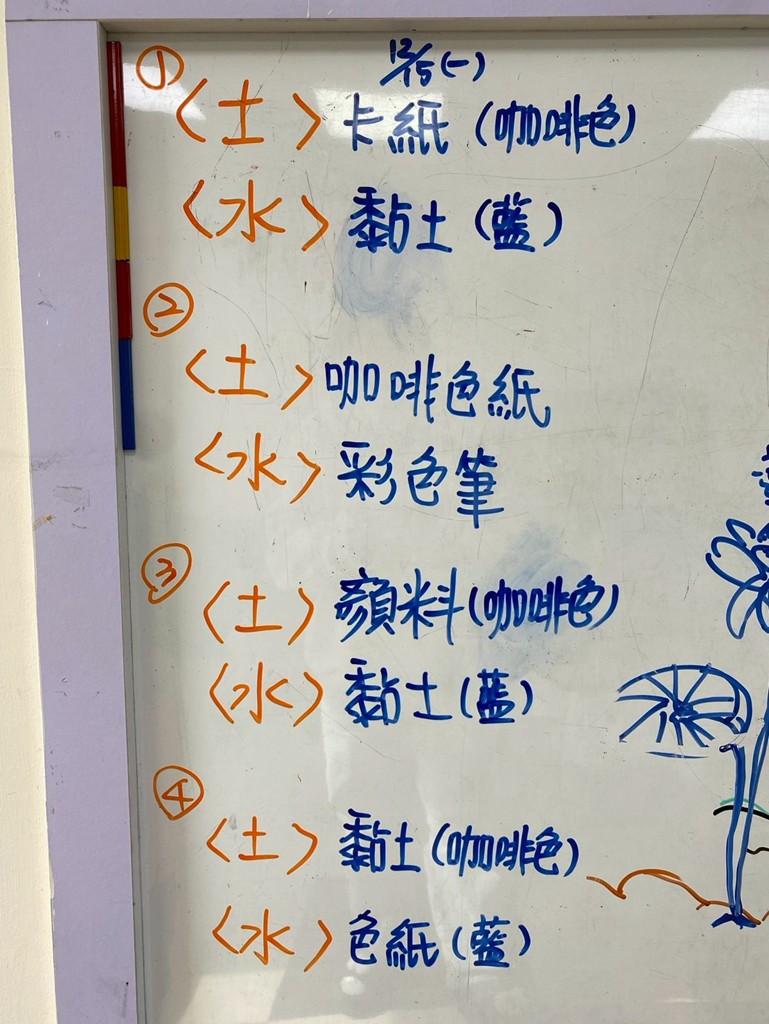 12/15(一)
①
<土> 卡紙(咖啡色)
<水> 黏土(藍)
②
<土>咖啡色紙
<水> 彩色筆
③
<土> 顏料(咖啡色)
<水> 黏土(藍)
④
<土> 黏土(咖啡色)
<水> 色紙(藍)